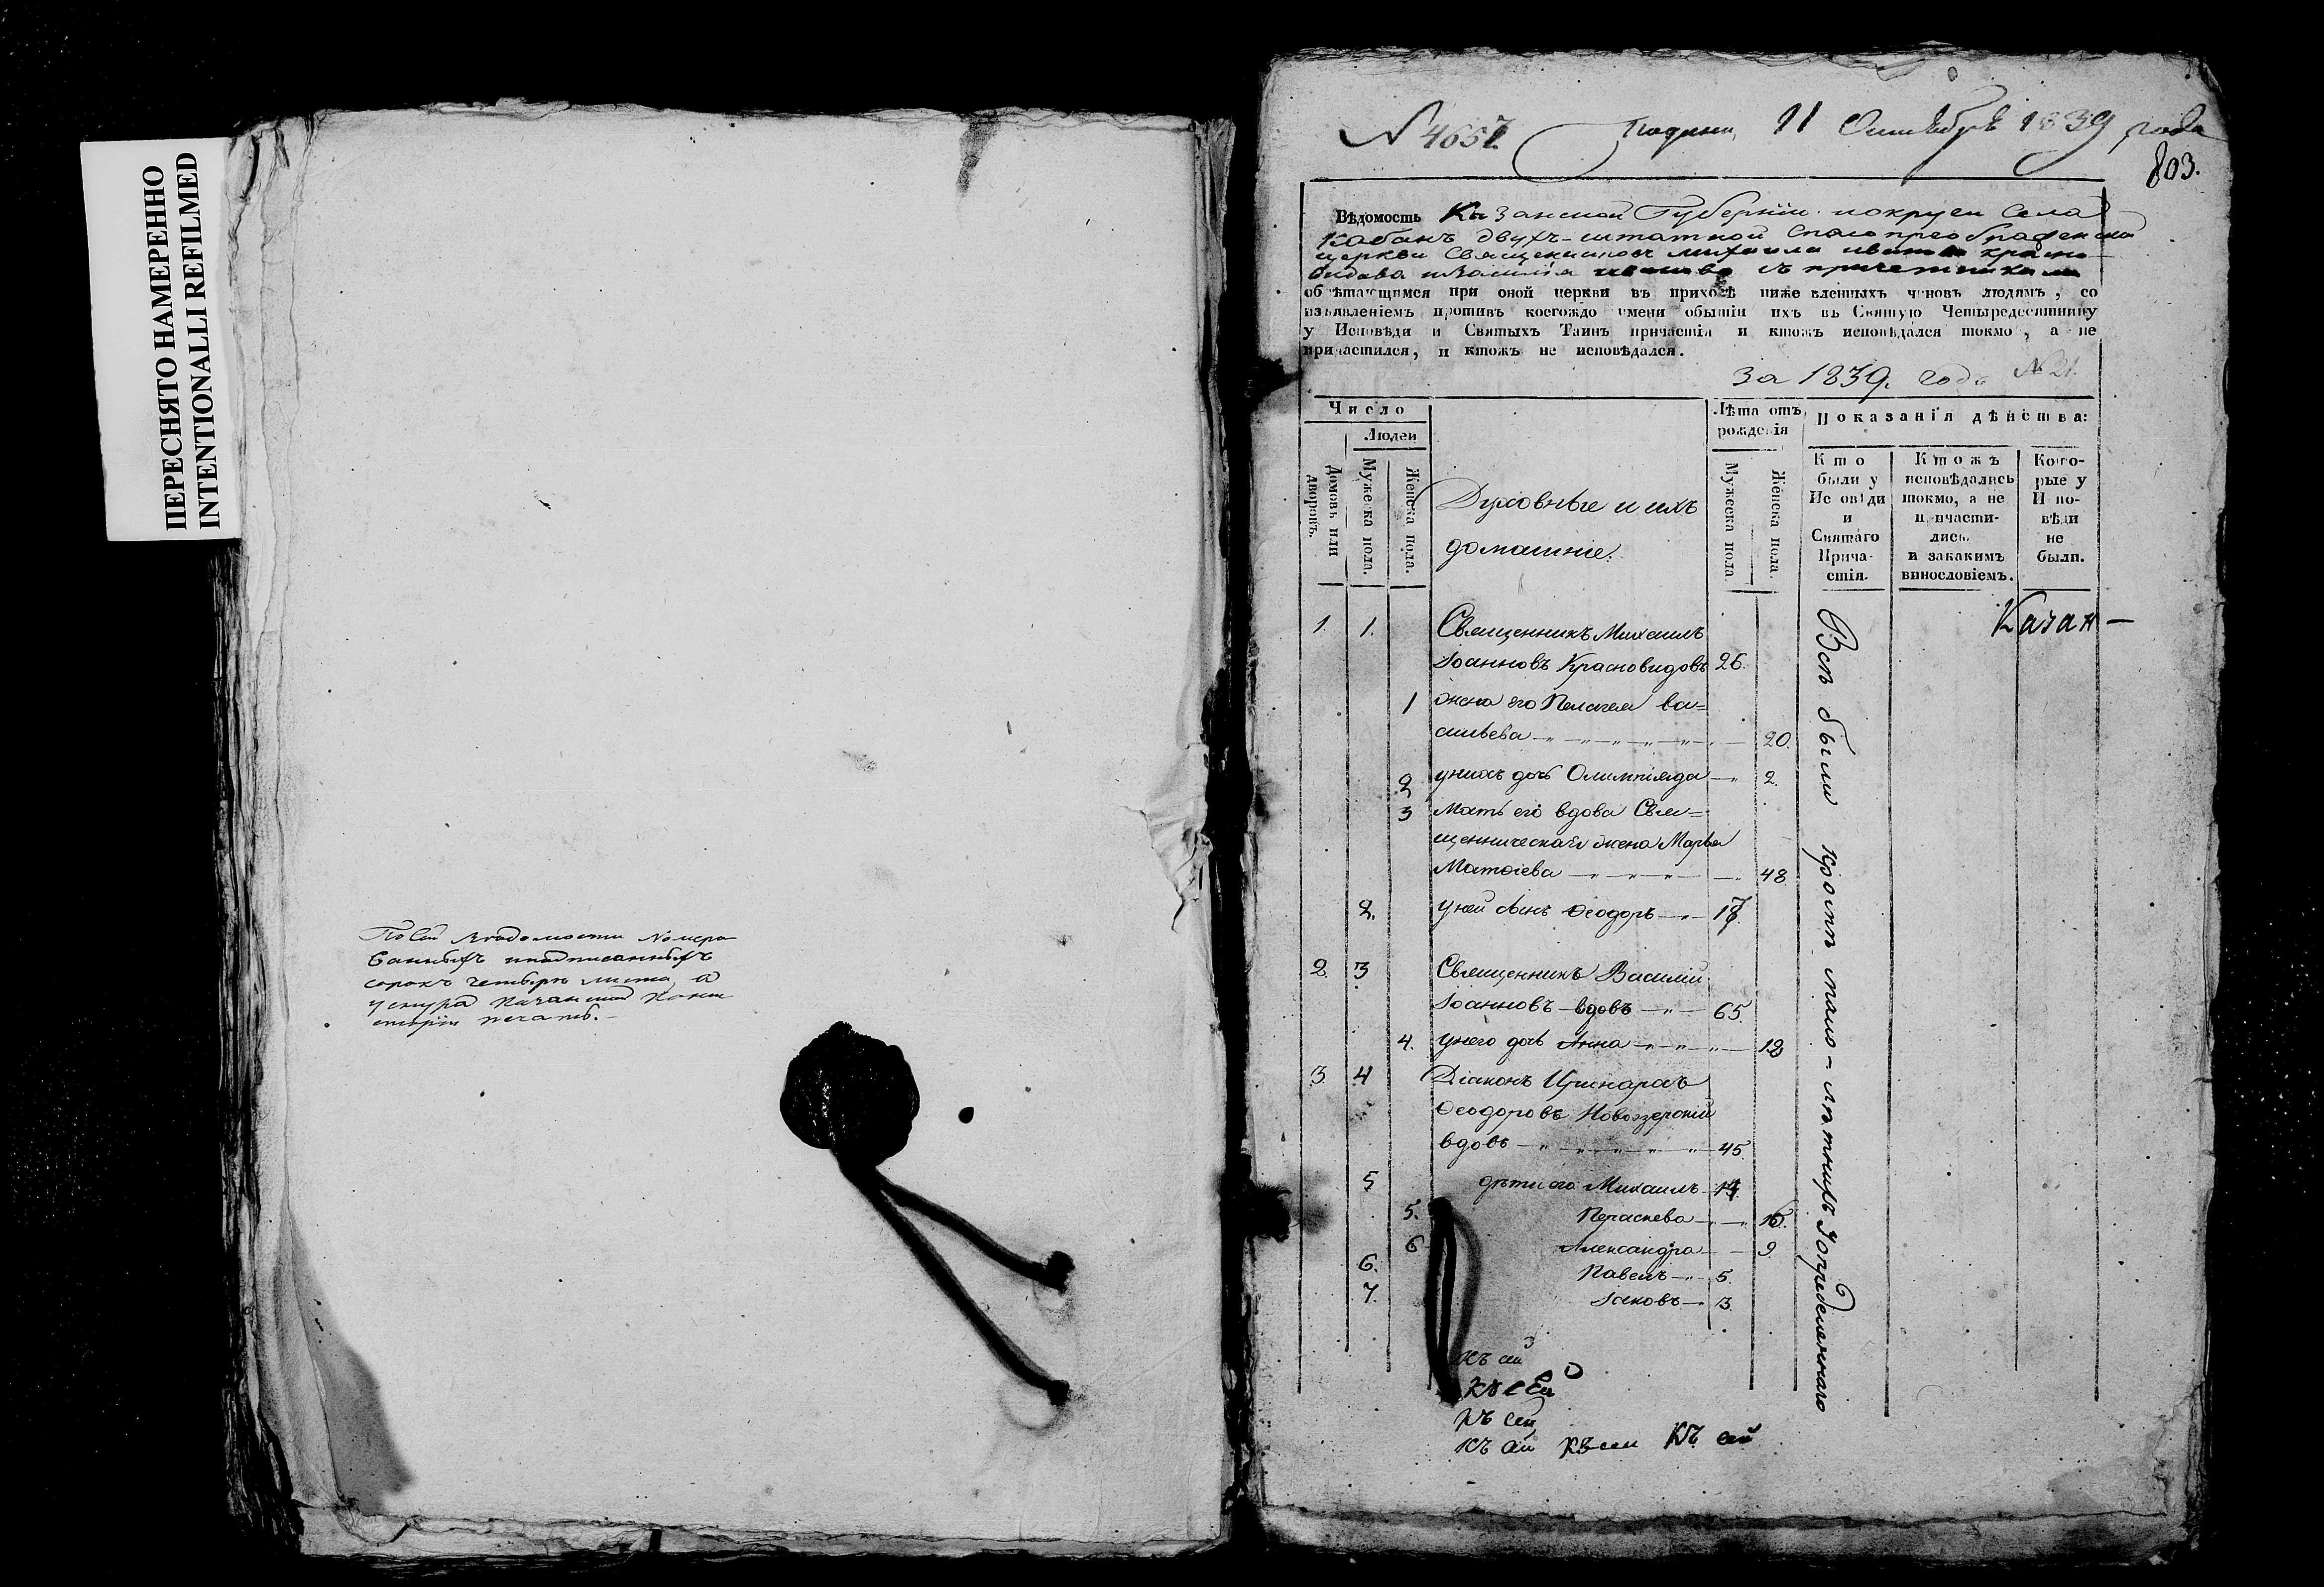 ПЕРЕСНЯТО НАМЕРЕННО
INTENTIONALLI REFILMED
По сей ведомости номеро
ванныхъ и подписанныхъ
сорокъ четыре листа, а
у снура Казанской Конси
сторіи печать.
N 4657.
11 Октября 1839 года
803.
Вѣдомость Казанской Губерніи и округи села
Кабанъ двухъ-штатной Спасопреображенской
церкви Священниковъ Михаила Иванова Красно-
видова и Василія Иванова съ причетниками
обрѣтающимся при оной церкви въ приходѣ нижеявленныхъ чиновъ людямъ, со
изъявленіемъ противъ коегождо имени бытіи ихъ въ Святую Четыредесятницу
у Исповѣди и Святыхъ Таинъ причастія и ктожъ исповѣдался токмо, а не
причастился, и ктожъ не исповѣдался.
за 1839. годъ № 21.
Число
Людей
Домовъ или дворовъ.
Мужеска пола.
Женска пола.
Духовные и ихъ
домашніе.
Лѣта отъ
рожденія
Мужеска пола
Женска пола.
Показанія дѣйства:
Кто
были у
Исповѣди
и
Святаго
Прича-
стія.
Ктожъ
исповѣдались
токмо, а не
причасти-
лись.
и закакимъ
винословіемъ.
Кото-
рые у
Испо-
вѣди
не
были.
1. 1. Священникъ Михаилъ
Іоанновъ Красновидовъ 26.
1 жена его Пелагея Ва=
сильева 20.
2 у нихъ дочь Олимпіяда 2.
3 Мать его вдова Свя=
щенническая жена Марья
Матѳіева 48.
2. у ней сынъ Ѳеодоръ 17.
2. 3 Священникъ Василій
Іоанновъ вдовъ 65.
4. у него дочь Анна 12
3. 4 Діаконъ
Ѳеодоровъ Новозерскій
вдовъ 45.
5 дѣти его Михаилъ 14.
5. Параскева 15.
6 Александра 9.
6. Павелъ 5.
7. Іаковъ 3.
Всѣ были кромѣ мало-лѣтнихъ
Казан-
къ сей
къ сей
къ сей
къ сей къ сей къ сей